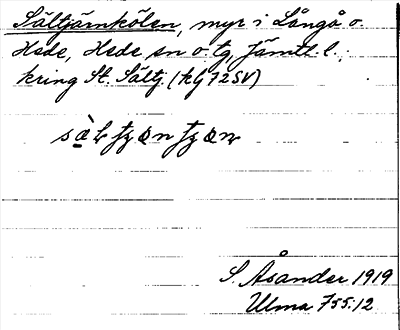 Sältjärnkölen, myr i Långå o.
Hede, Hede sn o. tg, Jämtl. l.;
kring St. Sältj. (kg 72SV)
S. Åsander 1919
Ulma 755:12